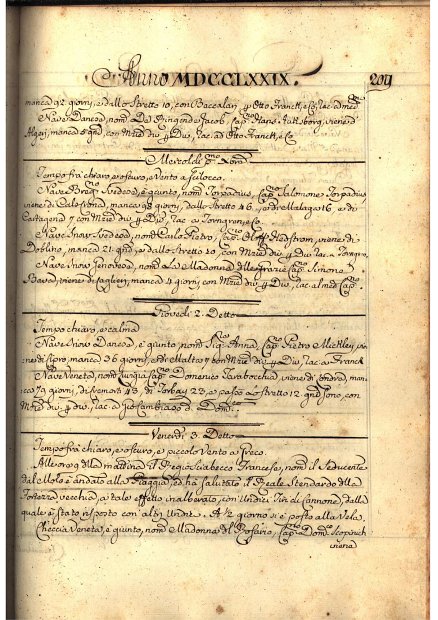 Anno MDCCLXXIX. 209
manca 92 giorni, e dallo Stretto 10, con Baccalari, p Otto Franck, e Co, lac. ad med.mo
Nave Danese, nom.
Algeri, manca 8 gni, con Merci div. p Div., lac. ad Otto Franck, e Co
Mercoldì p.mo Xbre
Tempo frà chiaro, e oscuro, e Vento a Scilocco.
Nave Brig.no Svedese, è giunto, nom. Torpadius, Cap.no Salomone Torpadius,
viene di Calostrona, manca 98 giorni, dallo Stretto 46, e di Malaga 16, e di
Cartagena 7 con Merci div. p Div., lac. a
Nave Snow Svedese, nom. Carlo Pietro, Cap.no Oloff Hedstrom, viene di
Dublino, manca 21 gni, e dallo Stretto 20, con Merci div. p Div., lac. a
Nave Snow Genovese, nom. La Madonna delle Grazie, Cap.no Simone
viene di Caglieri, manca 4 giorni, con Merci div. p Div., lac. al med. Cap.no
Giovedì 2. Detto
Tempo chiaro, e calma
Nave Snow Danese, è giunto, nom. Sig.ra Anna, Cap.no Pietro Mickley, vie-
ne di Tiro, manca 36 giorni, e di Malta 7 con Merci div. p Div., lac. a Franck
Nave Veneta, nom. Cap.no Domenico Tarabocchia, viene di Londra, man-
ca 79 giorni, di 43, di Torbay 23, e passò lo Stretto 12 gni sono, con
Merci div. p Div., lac. a Gio
Venerdì 3. Detto
Tempo frà chiaro, e oscuro, e piccolo Vento a Greco.
Alle ore 9 della mattina il Regio Sciabecco Francese, nom. il Seducente
dal Molo è andato alla Spiaggia, ed ha salutato il Reale Stendardo della
Fortezza vecchia, a tale effetto inalberato, con Undici Tiri di Cannone, dalla
quale è stato risposto con altri Undici. A ½ giorno si è posto alla Vela
Checcia Veneta, è giunto, nom. Madonna del Rosario, Cap.no Dom.co
viene